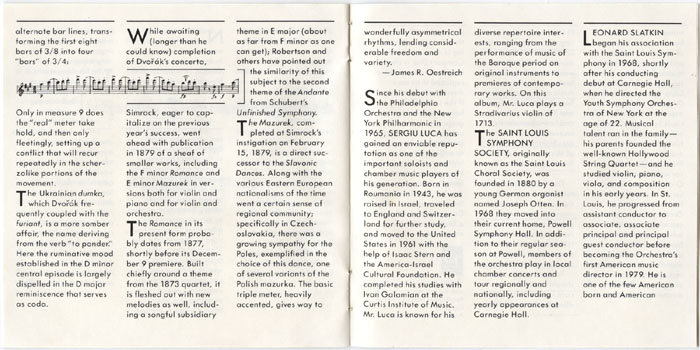 alternate bar lines, trans-
forming the first eight
bars of 3/8 into four
"bars" of 3/4:
Only in measure 9 does
the "real" meter take
hold, and then only
fleetingly, setting up a
conflict that will recur
repeatedly in the scher-
zolike portions of the
movement.
The Ukrainian dumka,
which Dvořák fre-
quently coupled with the
furiant, is a more somber
affair, the name deriving
from the verb "to ponder."
Here the ruminative mood
established in the D minor
central episode is largely
dispelled in the D major
reminiscence that serves
as coda.
While awaiting
(longer than he
could know) completion
of Dvořák's concerto,
Simrock, eager to cap-
italize on the previous
year's success, went
ahead with publication
in 1879 of a sheaf of
smaller works, including
the F minor Romance and
E minor Mazurek in ver-
sions both for violin and
piano and for violin and
orchestra.
The Romance in its
present form proba-
bly dates from 1877,
shortly before its Decem-
ber 9 premiere. Built
chiefly around a theme
from the 1873 quartet, it
is fleshed out with new
melodies as well, includ-
ing a songful subsidiary
theme in E major (about
as far from F minor as one
can get); Robertson and
others have pointed out
the similarity of this
subject to the second
theme of the Andante
from Schubert's
Unfinished Symphony.
The Mazurek, com-
pleted at Simrock's
instigation on February
15, 1879, is a direct suc-
cessor to the Slavonic
Dances. Along with the
various Eastern European
nationalisms of the time
went a certain sense of
regional community;
specifically in Czech-
oslovakia, there was a
growing sympathy for the
Poles, exemplified in the
choice of this dance, one
of several variants of the
Polish mazurka. The basic
triple meter, heavily
accented, gives way to
wonderfully asymmetrical
rhythms, lending consid-
erable freedom and
variety.
—James R. Oestreich
Since his debut with
the Philadelphia
Orchestra and the New
York Philharmonic in
1965, SERGIU LUCA has
gained an enviable repu-
tation as one of the
important soloists and
chamber music players of
his generation. Born in
Roumania in 1943, he was
raised in Israel, traveled
to England and Switzer-
land for further study,
and moved to the United
States in 1961 with the
help of Isaac Stern and
the America-Israel
Cultural Foundation. He
completed his studies with
Ivan Galamian at the
Curtis Institute of Music.
Mr. Luca is known for his
diverse repertoire inter-
ests, ranging from the
performance of music of
the Baroque period on
original instruments to
premieres of contempo-
rary works. On this
album, Mr. Luca plays a
Stradivarius violin of
1713.
The SAINT LOUIS
SYMPHONY
SOCIETY, originally
known as the Saint Louis
Choral Society, was
founded in 1880 by a
young German organist
named Joseph Otten. In
1968 they moved into
their current home, Powell
Symphony Hall. In addi-
tion to their regular sea-
son at Powell, members of
the orchestra play in local
chamber concerts and
tour regionally and
nationally, including
yearly appearances at
Carnegie Hall.
LEONARD SLATKIN
began his association
with the Saint Louis Sym-
phony in 1968, shortly
after his conducting
debut at Carnegie Hall,
when he directed the
Youth Symphony Orches-
tra of New York at the
age of 22. Musical
talent ran in the family—
his parents founded the
well-known Hollywood
String Quartet—and he
studied violin, piano,
viola, and composition
in his early years. In St.
Louis, he progressed from
assistant conductor to
associate, associate
principal and principal
guest conductor before
becoming the Orchestra's
first American music
director in 1979. He is
one of the few American
born and American